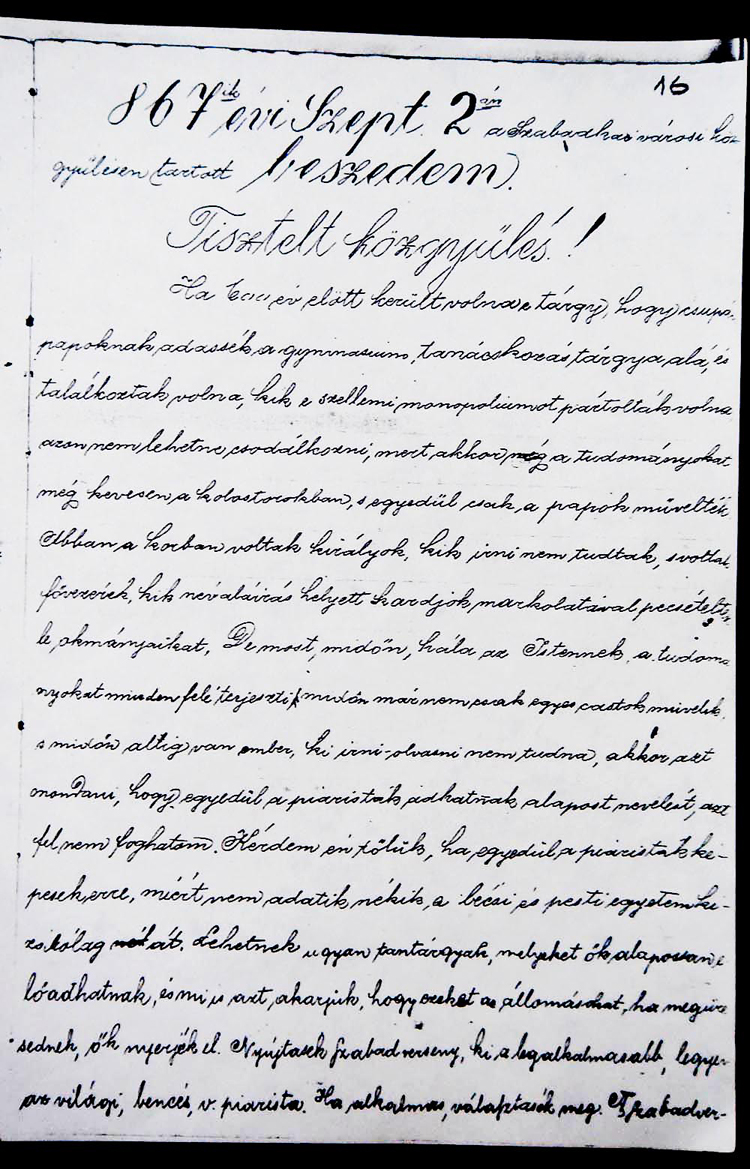 16
867ik évi Szept. 2án a Szabadkai városi köz-
gyülésen tartott beszedem.
Tisztelt közgyülés!
Ha 600 év elött került volna e tárgy, hogy csupá
papoknak adassék a gymnasium, tanácskozás tárgya alá, és
találkoztak volna, kik e szellemi monopoliumot pártolták volna
azon nem lehetne csodálkozni, mert akkor még a tudományokat
még kevesen, a kolostorokban, s egyedül csak a papok művelték
Abban a korban voltak királyok, kik irni nem tudtak, s voltak
fővezérek, kik névaláirás helyett kardjok markolatával pecsételték
le okmányaikat. De most, midőn, hála az Istennek, a tudomá
nyokat minden felé terjesztik, midőn már nem csak egyes castok művelik,
s midőn alíg van ember, ki irni-olvasni nem tudna, akkor azt
mondani, hogy egyedül a piaristák adhatnak alapost nevelést, azt
fel nem foghatom. Kérdem én tőlük, ha egyedül a piaristák ké-
pesek erre, miért nem adatik nékik, a bécsi és pesti egyetem ki-
zárólag át. Lehetnek ugyan tantárgyak, melyeket ők alapossan e
lőadhatnak, és mi is azt akarjuk, hogy ezeket az állomásokat, ha megüre
sednek, ők nyerjék el. Nyújtassék szabadverseny, ki a legalkalmasabb, legyen
az világi, bencés, v. piarista. Ha alkalmas, választassék meg. Szabadver-